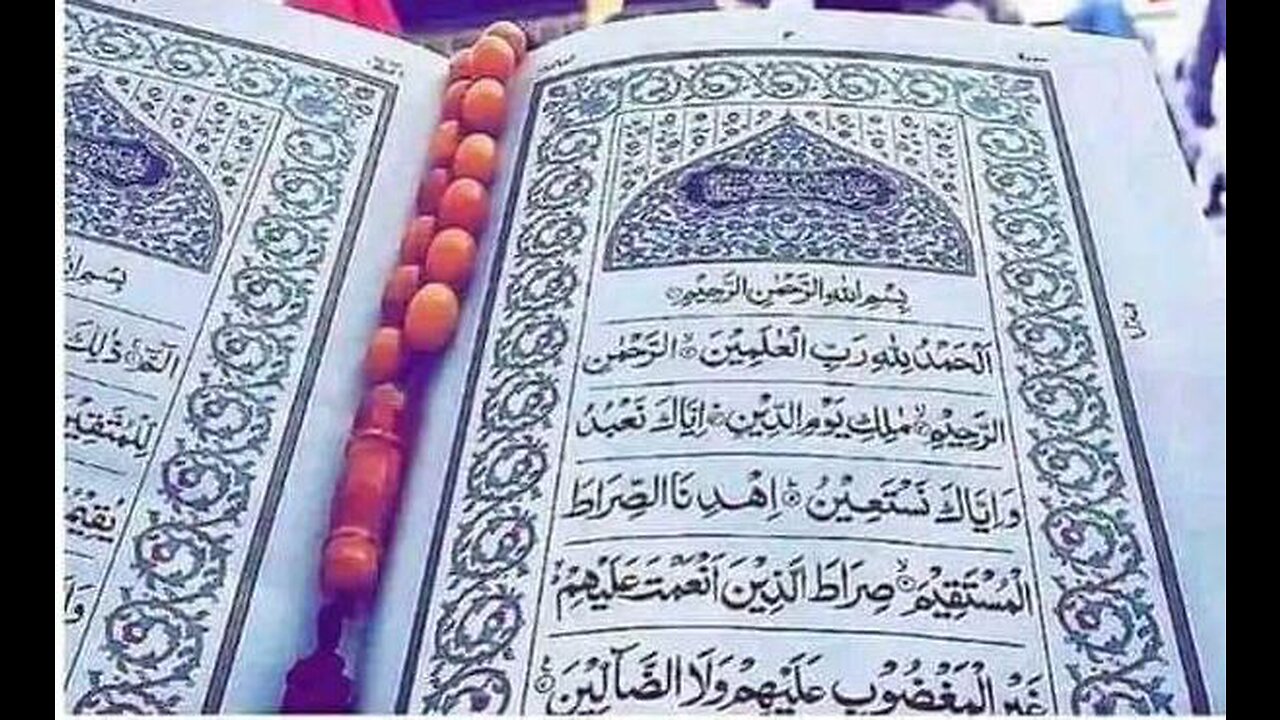 بِسْمِ اللهِ الرَّحْمٰنِ الرَّحِيْمِ
اَلْحَمْدُ لِلّٰهِ رَبِّ الْعٰلَمِيْنَ الرَّحْمٰنِ
الرَّحِيْمِ مٰلِكِ يَوْمِ الدِّيْنِ اِيَّاكَ نَعْبُدُ
وَاِيَّاكَ نَسْتَعِيْنُ اِهْدِنَا الصِّرَاطَ
الْمُسْتَقِيْمَ صِرَاطَ الَّذِيْنَ اَنْعَمْتَ عَلَيْهِمْ
غَيْرِ الْمَغْضُوْبِ عَلَيْهِمْ وَلَا الضَّآلِّيْنَ
الٓمّٓ ذٰلِكَ
لِّلْمُتَّقِيْنَ